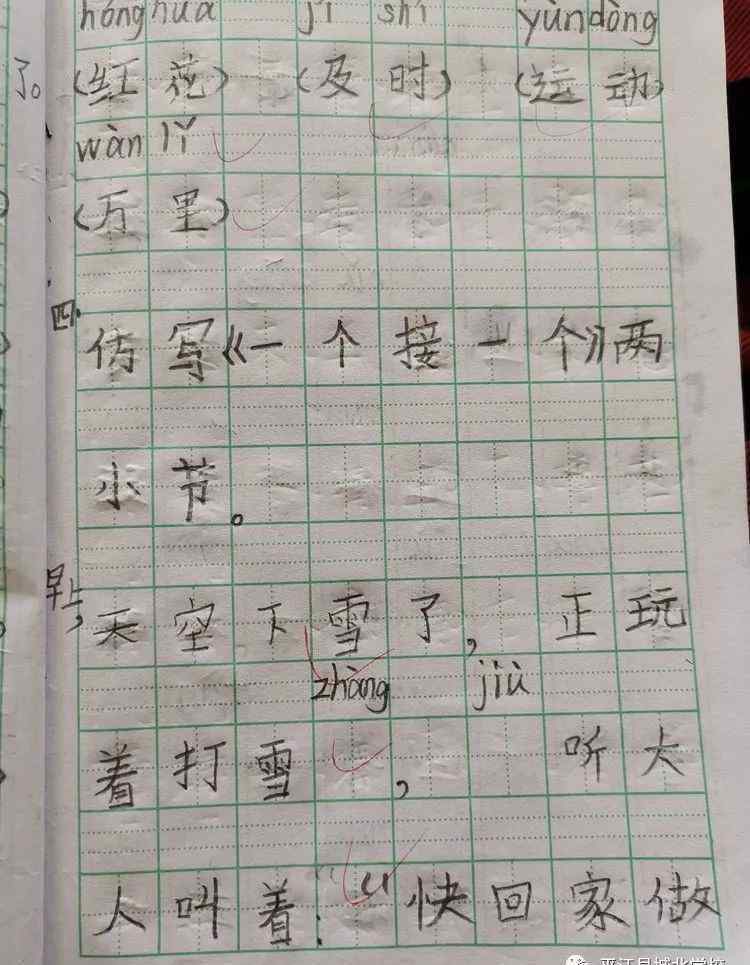 hónghuā jí shí yùndòng
了。(红花) (及时) (运动)
wàn lǐ
(万里)
四.仿写《一个接一个》两
小节。
早上,天空下雪了,正玩
zhàng jiù
着打雪 , 听大
人叫着:“快回家做
平江县城北学校